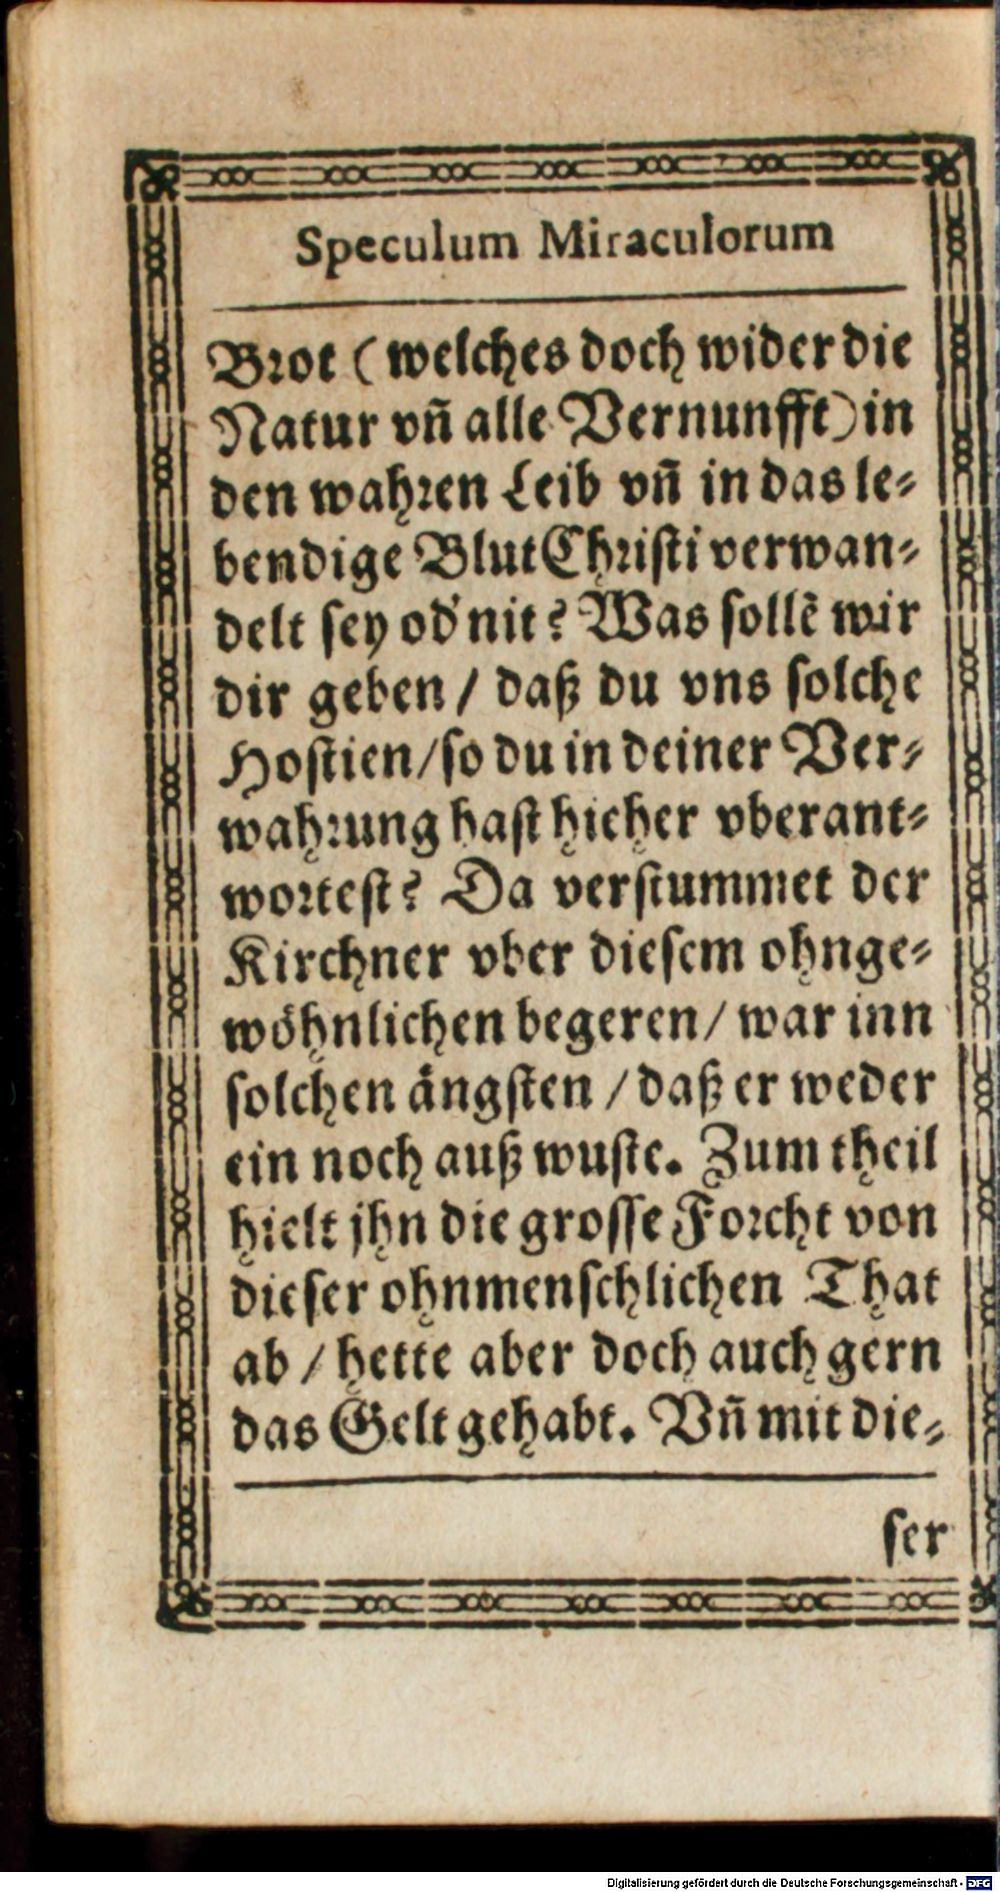 Speculum Miraculorum
Brot (welches doch wider die
Natur vñ alle Vernunfft) in
den wahren Leib vñ in das le-
bendige Blut Christi verwan-
delt sey od' nit? Was sollē wir
dir geben / daß du vns solche
Hostien / so du in deiner Ver-
wahrung hast hieher vberant-
wortest? Da verstummet der
Kirchner vber diesem ohnge-
wöhnlichen begeren / war inn
solchen ängsten / daß er weder
ein noch auß wuste. Zum theil
hielt jhn die grosse Forcht von
dieser ohnmenschlichen That
ab / hette aber doch auch gern
das Gelt gehabt. Vñ mit die-
ser
Digitalisierung gefördert durch die Deutsche Forschungsgemeinschaft - DFG